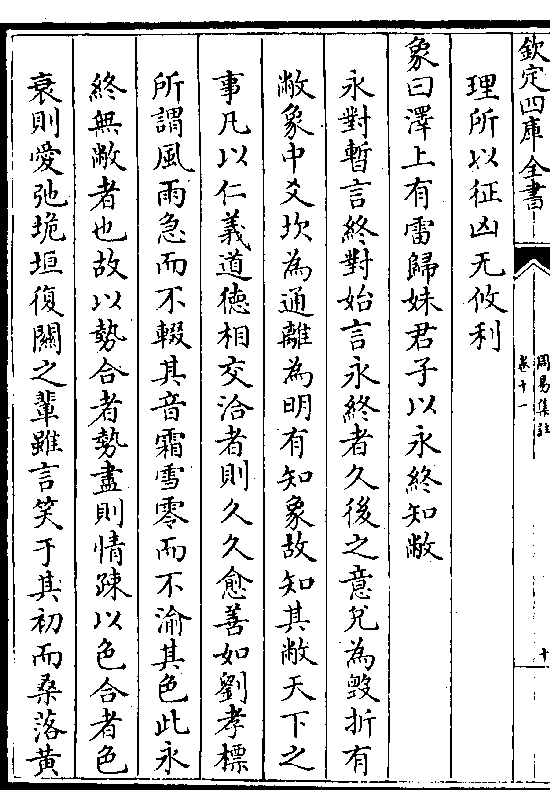 欽定四庫全書
周易集註
卷十一
十
理所以征凶无攸利
象曰澤上有雷歸妹君子以永終知敝
永對暫言終對始言永終者久後之意兌為毁折有
敝象中爻坎為通離為明有知象故知其敝天下之
事凡以仁義道徳相交洽者則久久愈善如劉孝標
所謂風雨急而不輟其音霜雪零而不渝其色此永
終無敝者也故以勢合者勢盡則情踈以色合者色
衰則愛弛垝垣復關之輩雖言笑于其初而桑落黄